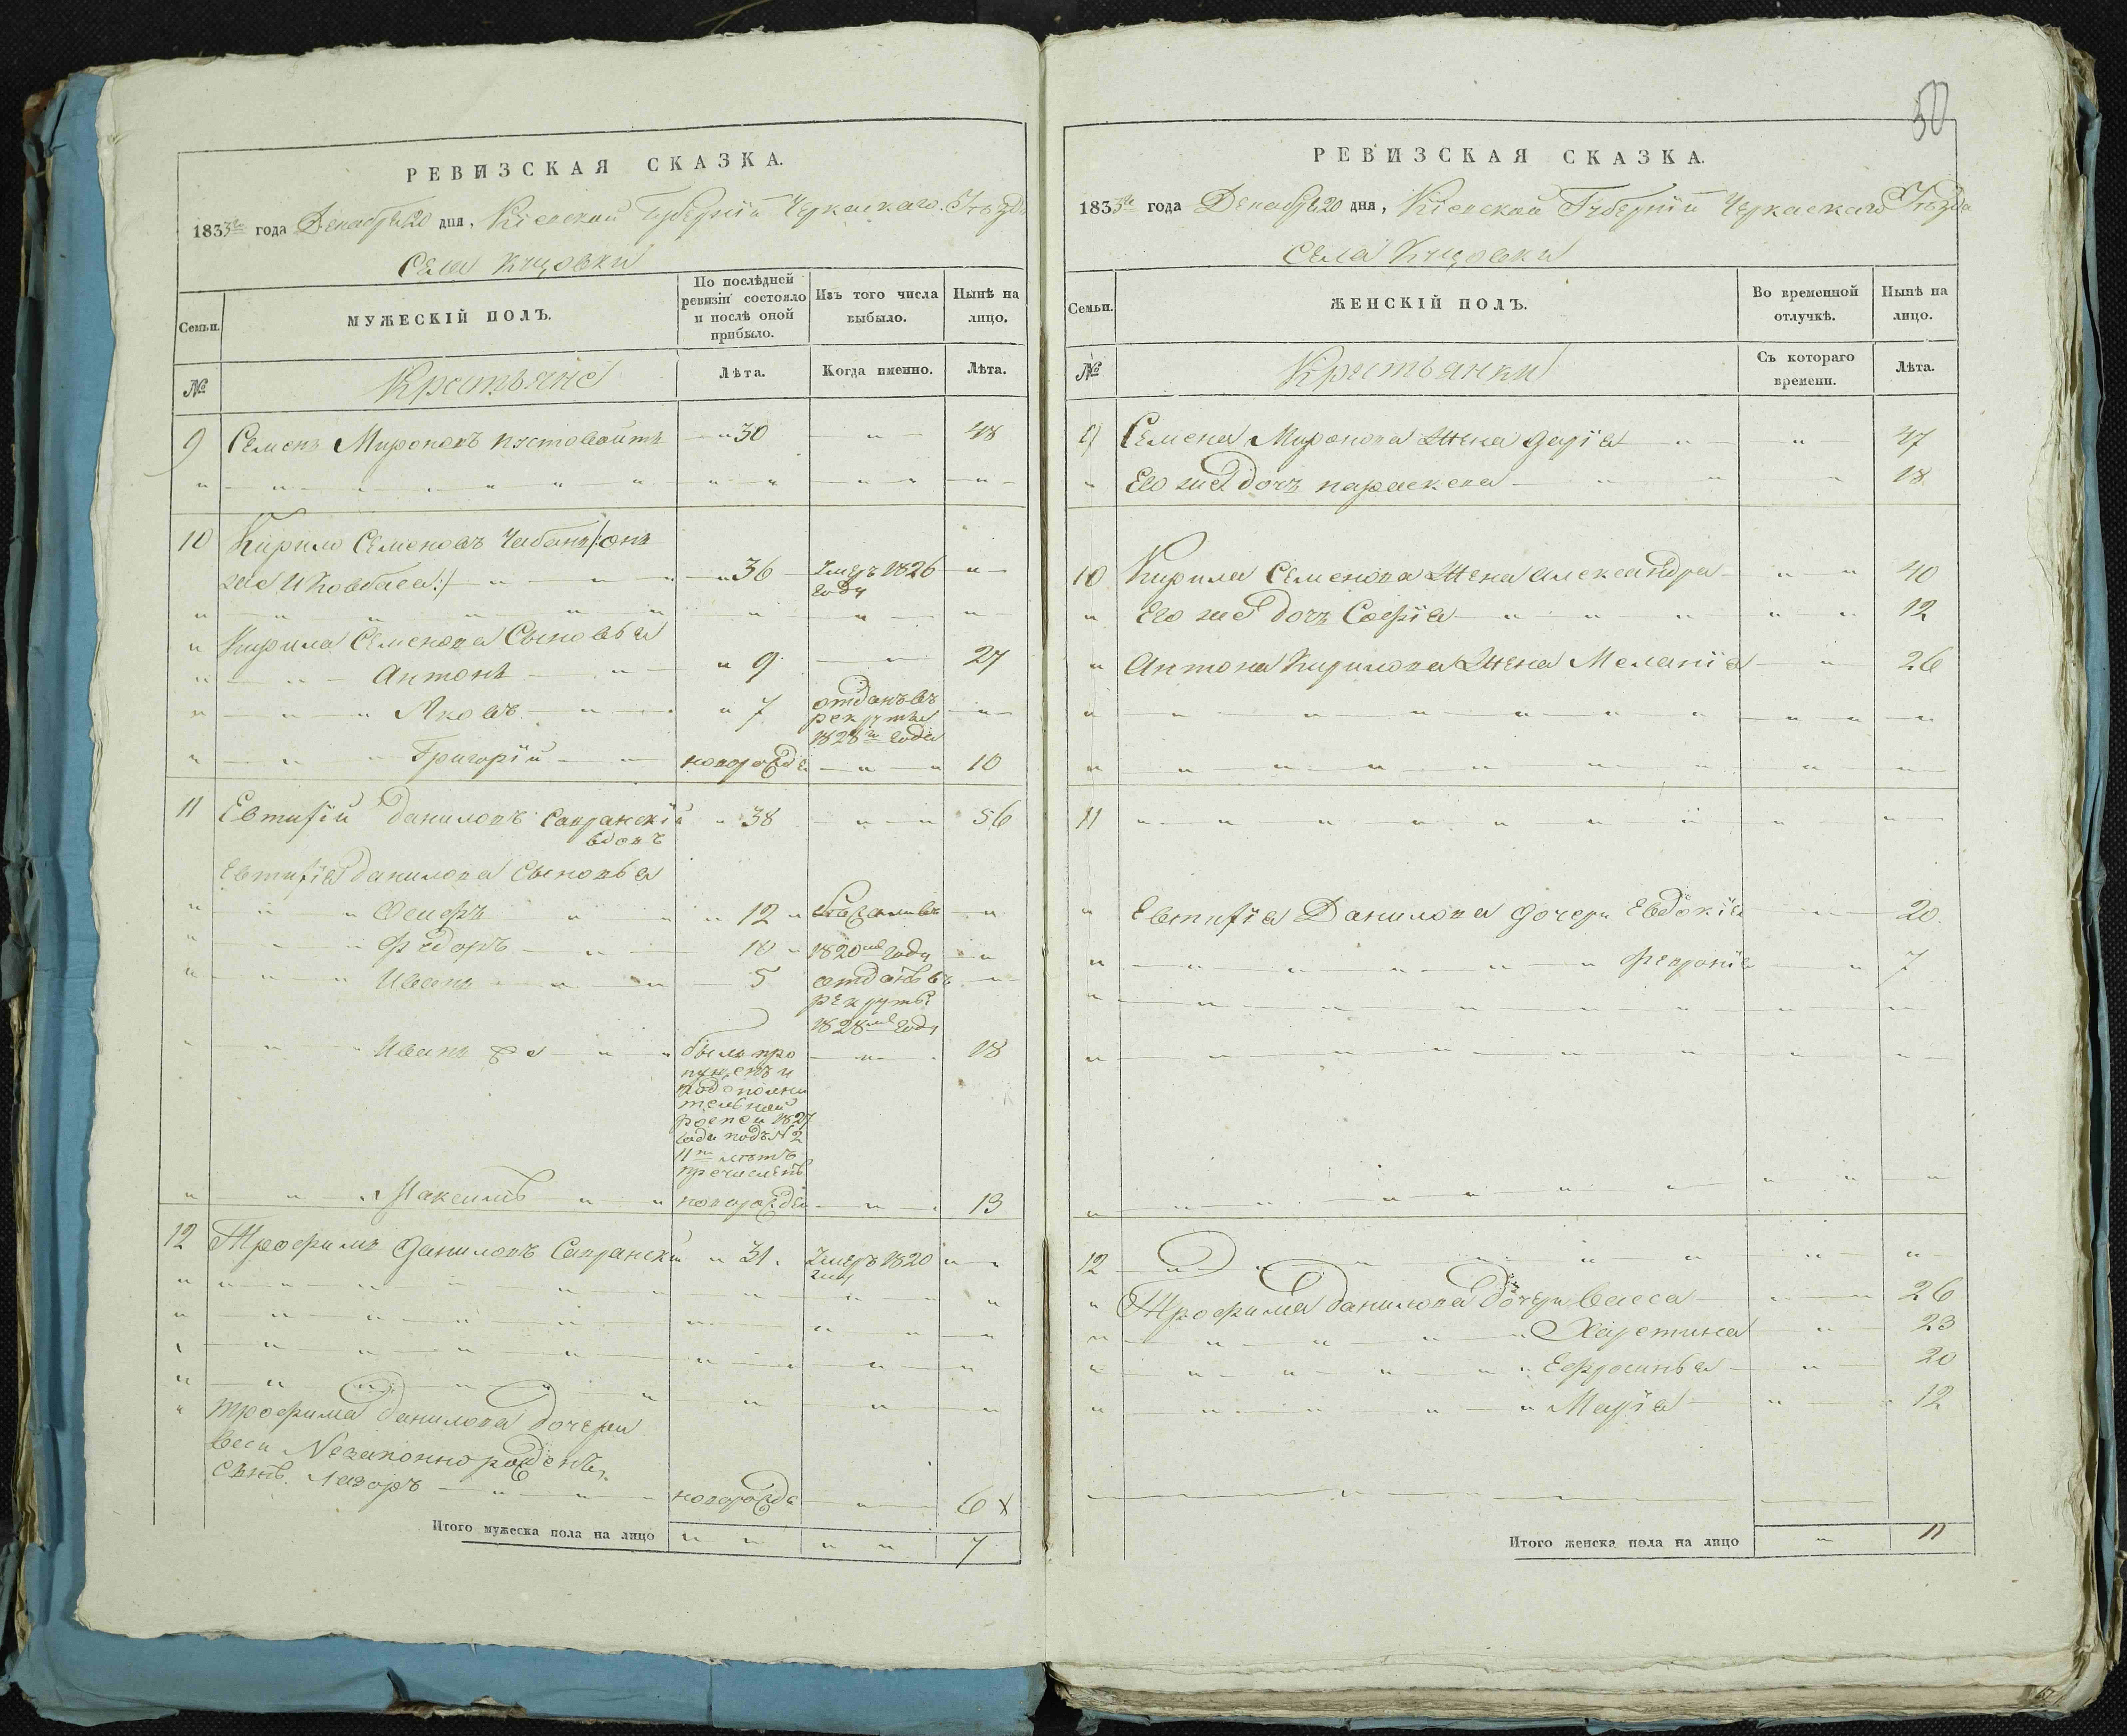 РЕВИЗСКАЯ СКАЗКА.
1833го года Декабря 20 дня, Кіевской Губерніи Черкаскаго Уѣзда
Села
Семьи.
МУЖЕСКІЙ ПОЛЪ.
По послѣдней ревизіи состояло и послѣ оной прибыло.
Изъ того числа выбыло.
Нынѣ на лицо.
№
Крестьяне
Лѣта.
Когда именно.
Лѣта.
9 Семенъ Мироновъ 30 48
10 Кирило Семеновъ Чабанъ /:онъ
же И Ковбаса:/ 36 Умеръ 1826 году
Кирила Семенова Сыновья
Антонъ 9 27
Яковъ 7 отданъ въ
рекруты
1828го года
Григорій новорожде 10
11 Евтифій Даниловъ Савранскій 38 56
вдовъ
Евтифія Данилова Сыновья
12
Фёдоръ 10 1820мъ Году
Иванъ 5 отданъ въ
рекруты
1828мъ Году
Иванъ 2й былъ про 18
пущенъ и
подополни
тельной
росписи 1827
года подъ N 2
11ти лѣтъ
Максимъ новорожде 13
12 Трофимъ Даниловъ Савранскій 31 Умеръ 1820
году
Трофима Данилова Дочери
Васи Незаконнорожденъ
Сынъ Лазоръ новорожде 6 х
Итого мужеска пола на лицо 7
50
РЕВИЗСКАЯ СКАЗКА.
1833го года Декабря 20 дня, Кіевской Губерніи Черкаскаго Уѣзда
Села
Семьи.
ЖЕНСКІЙ ПОЛЪ.
Во временной отлучкѣ.
Нынѣ на лицо.
№
Крестьянки
Съ котораго времени.
Лѣта.
9 Семена Миронова Жена Дарія 47
Его же Дочъ Параскева 18
10 Кирила Семенова Жена Александра 40
Его же Дочъ Софія 12
Антона Кирилова Жена Меланія 26
11
Евтифія Данилова Дочери Евдокія 20
Февронія 7
12
Трофима Данилова Дочери Васса 26
Харетина 23
Ефросинья 20
Марія 12
Итого женска пола на лицо 11